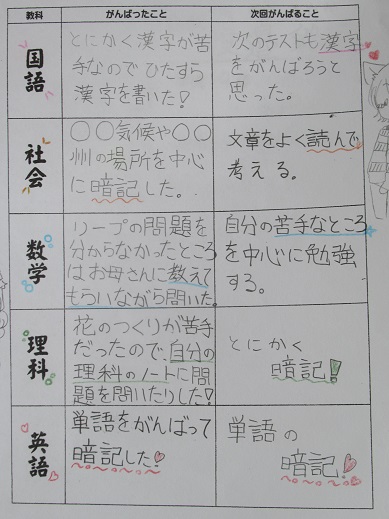 教科 がんばったこと 次回がんばること
国語
とにかく漢字が苦
手なのでひたすら
漢字を書いた!
次のテストも漢字
をがんばろうと
思った。
社会
○○気候や○○
州の場所を中心
に暗記した。
文章をよく読んで
考える。
数学
リープの問題を
分からなかったところ
はお母さんに教えて
もらいながら問いた。
自分の苦手なところ
を中心に勉強
する。
理科
花のつくりが苦手
だったので、自分の
理科のノートに問
題を問いたりした!
とにかく
暗記!
英語
単語をがんばって
暗記した!
単語の
暗記!